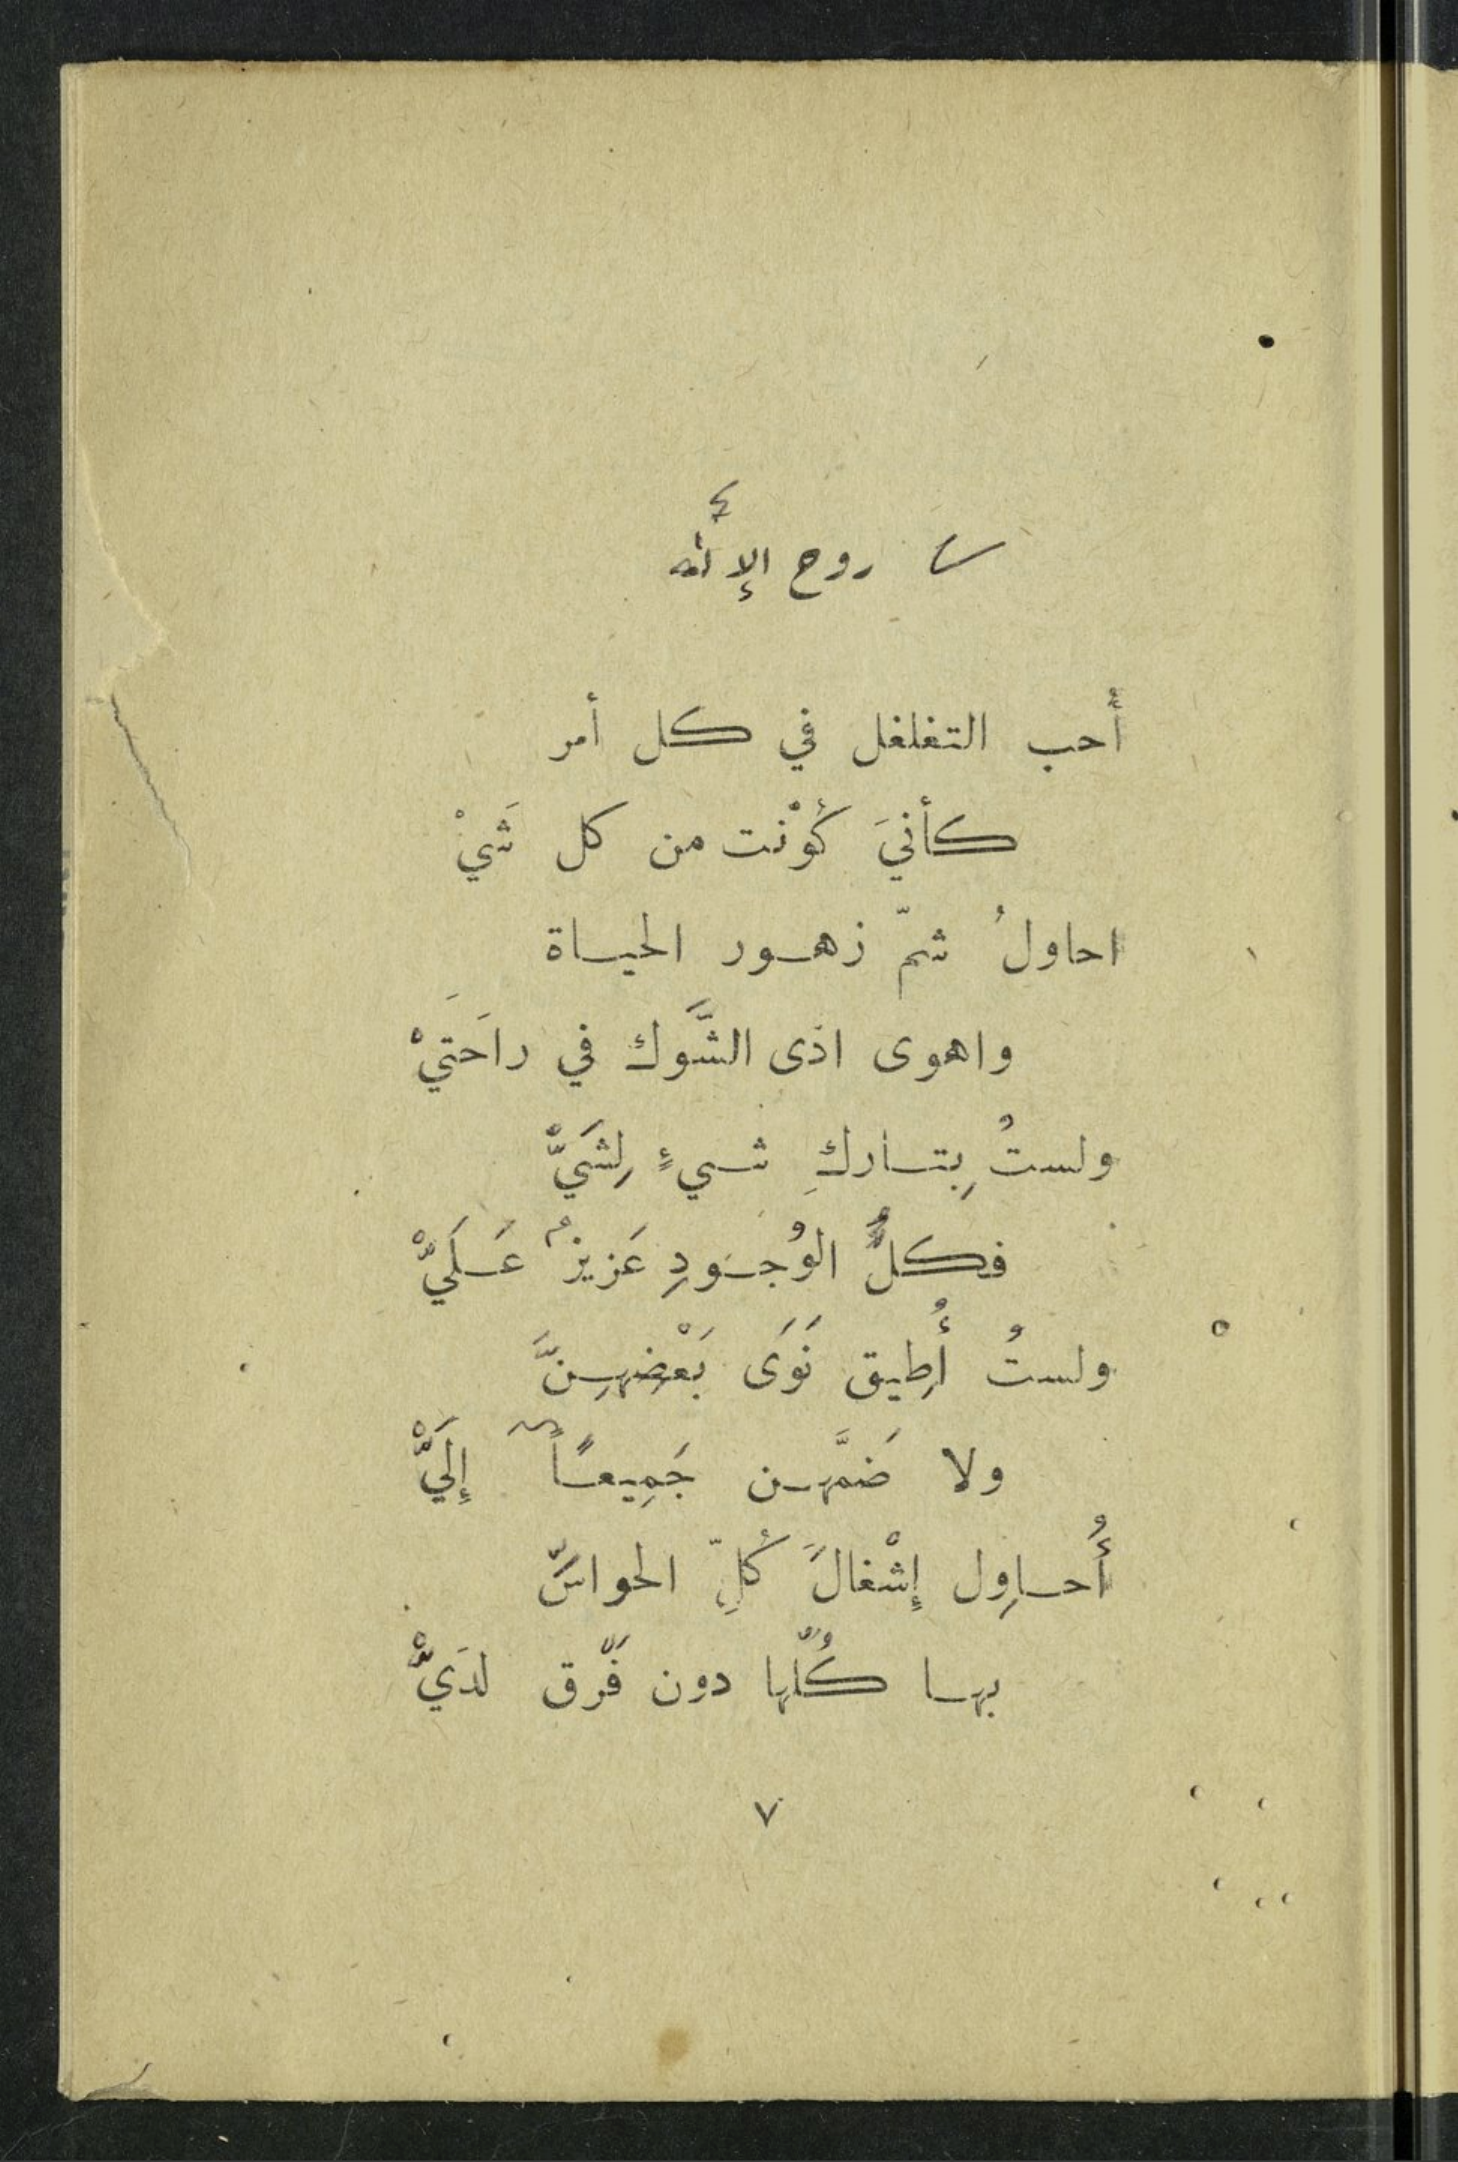 روح الإلٰه
أُحب التغلغل في كل أمر
كأنيَ كُوْنت من كل شَيْ
احاولُ شمّ زهور الحياة
واهوى اذى الشَّوك في راحَتَيْ
ولستُ بِتاركِ شيءٍ لِشَيّْ
فكلُّ الوُجودِ عَزيزٌ عَلَيّْ
ولستُ أُطِيق نَوَى بَعْضِهِنَّ
ولا ضَمَّهن جَمِيعاً إِلَيّْ
أُحاوِل إِشْغالَ كُلِّ الحواسِّ
بها كُلّها دون فَرّق لدَيّْ
٧